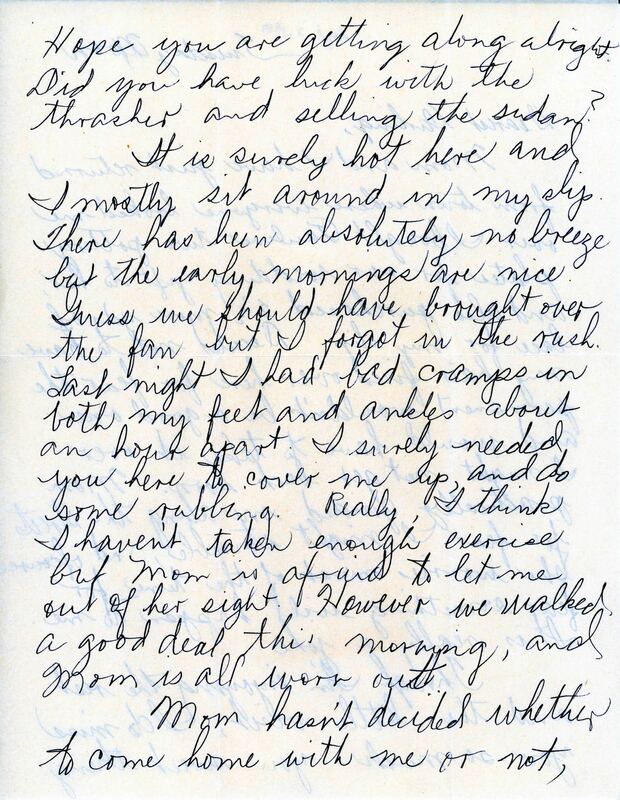 Hope you are getting along alright.
Did you have luck with the
thrasher and selling the sudan?
It is surely hot here and
I mostly sit around in my slip.
There has been absolutely no breeze
but the early mornings are nice.
Guess we should have brought over
the fan but I forgot in the rush.
Last night I had bad cramps in
both my feet and ankles about
an hour apart. I surely needed
you here to cover me up, and do
some rubbing. Really, I think
I haven't taken enough exercise
but Mom is afraid to let me
out of her sight. However we walked
a good deal this morning, and
Mom is all worn out.
Mom hasn't decided whether
to come home with me or not,